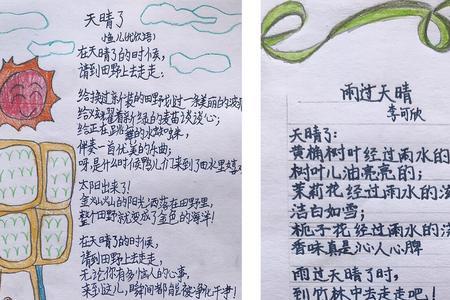 天晴了
在天晴了的时候，
请到田野上去走走：
给换过新装的田野划过一芳美丽的
给正在跳舞的水姑妹，
伴奏一首优美的乐曲；
呀是什么时候鸭儿们来到了田水里嬉
太阳出来了！
金灿灿的阳光洒落在田野里，
整个田野就变成了金色的海洋！
在天晴了的时候，
请到田野上去走走，
无论你有多恼人的心事，
来到这儿，瞬间都能被净化干净！
雨过天晴
李可欣
天晴了：
黄桷树叶经过雨水的
树叶儿油亮亮的；
茉莉花经过雨水的
洁白如雪；
桃子花经过雨水的
香味真是沁人心脾
雨过天晴了时，
到竹林中去走走吧！